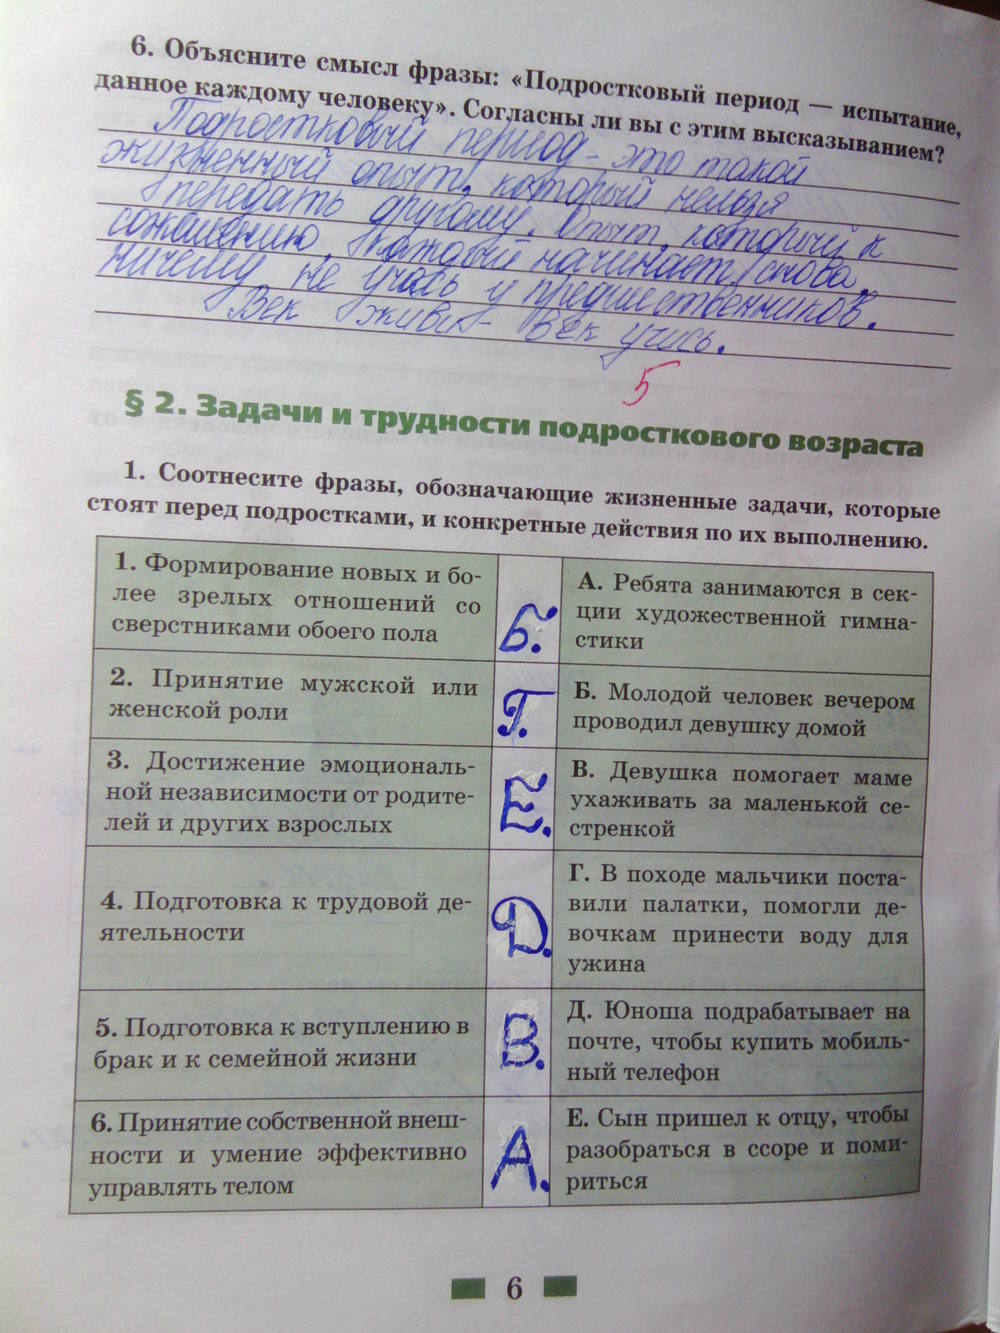 6. Объясните смысл фразы: «Подростковый период — испытание,
данное каждому человеку». Согласны ли вы с этим высказыванием?
Подростковый период - это такой
жизненный опыт, который нельзя
передать другому. Опыт, который к
сожалению, каждый начинает снова,
ничему не учась у предшественников.
Век живи - век учись.
5
§ 2. Задачи и трудности подросткового возраста
1. Соотнесите фразы, обозначающие жизненные задачи, которые
стоят перед подростками, и конкретные действия по их выполнению.
1. Формирование новых и бо-
лее зрелых отношений со
сверстниками обоего пола
Б.
А. Ребята занимаются в сек-
ции художественной гимна-
стики
2. Принятие мужской или
женской роли
Г.
Б. Молодой человек вечером
проводил девушку домой
3. Достижение эмоциональ-
ной независимости от родите-
лей и других взрослых
Е.
В. Девушка помогает маме
ухаживать за маленькой се-
стренкой
4. Подготовка к трудовой де-
ятельности
Д.
Г. В походе мальчики поста-
вили палатки, помогли де-
вочкам принести воду для
ужина
5. Подготовка к вступлению в
брак и к семейной жизни
В.
Д. Юноша подрабатывает на
почте, чтобы купить мобиль-
ный телефон
6. Принятие собственной внеш-
ности и умение эффективно
управлять телом
А.
Е. Сын пришел к отцу, чтобы
разобраться в ссоре и поми-
риться
6